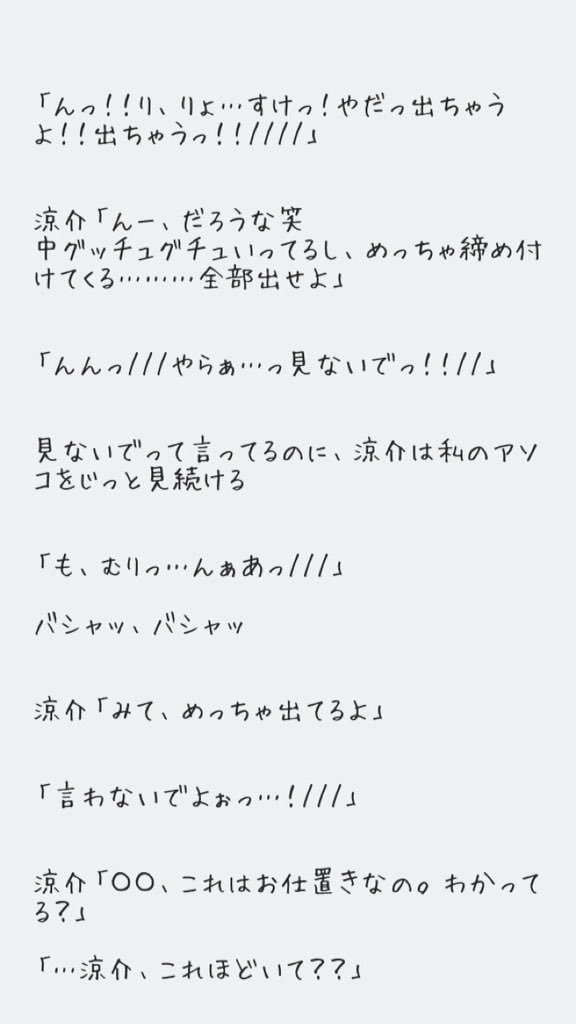 「んっ！！り、りょ…すけっ！やだっ出ちゃう
よ！！出ちゃうっ！！////」
涼介「んー、だろうな笑
中グッチュグチュいってるし、めっちゃ締め付
けてくる………全部出せよ」
「んんっ///やらぁ…っ見ないでっ！！//」
見ないでって言ってるのに、涼介は私のアソ
コをじっと見続ける
「も、むりっ…んぁあっ///」
バシャッ、バシャッ
涼介「みて、めっちゃ出てるよ」
「言わないでよぉっ…！///」
涼介「〇〇、これはお仕置きなの。わかって
る？」
「…涼介、これほどいて？？」